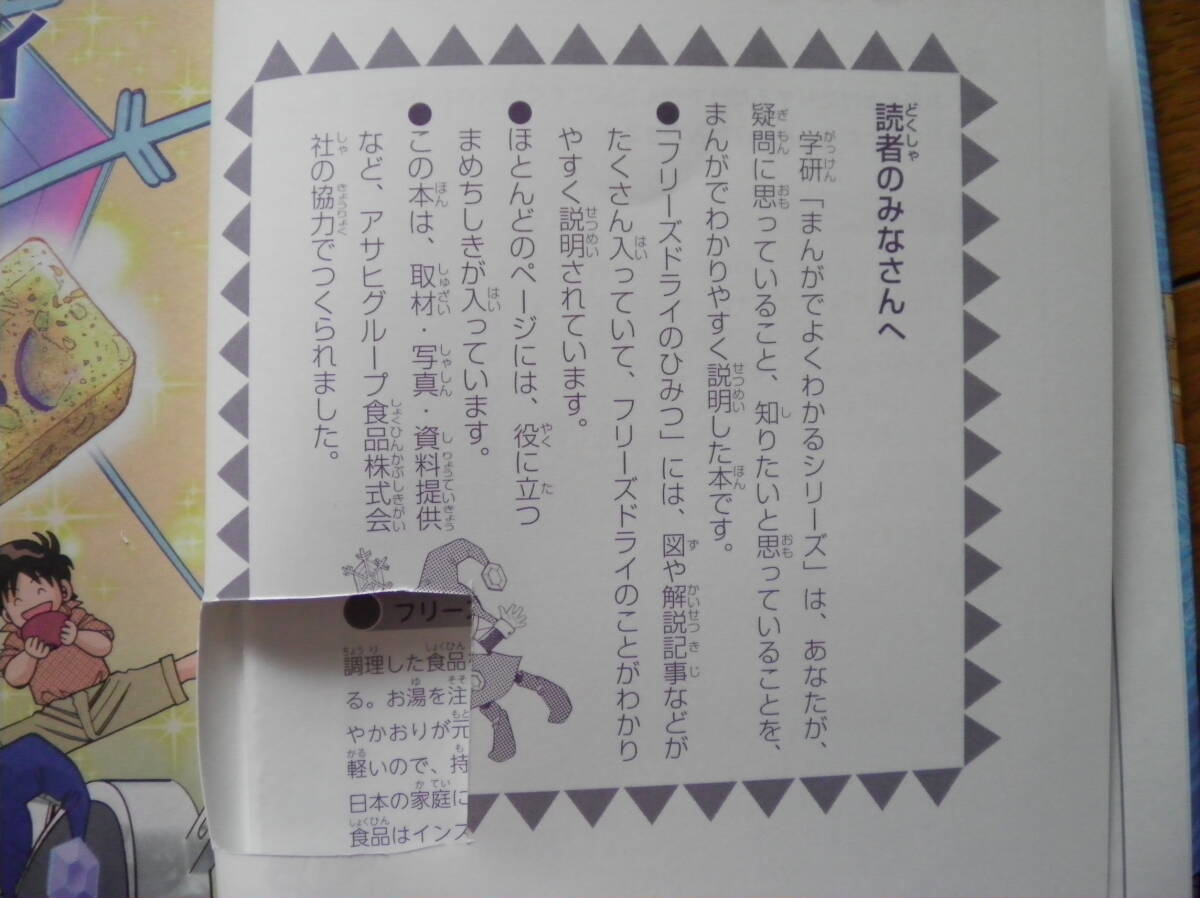 読者のみなさんへ
学研「まんがでよくわかるシリーズ」は、あなたが、
疑問に思っていること、知りたいと思っていることを、
まんがでわかりやすく説明した本です。
●「フリーズドライのひみつ」には、図や解説記事などが
たくさん入っていて、フリーズドライのことがわかり
やすく説明されています。
●ほとんどのページには、役に立つ
まめちしきが入っています。
●この本は、取材・写真・資料提供
など、アサヒグループ食品株式会
社の協力でつくられました。
フリー
調理した食品
る。お湯を注
やかおりが元
軽いので、持
日本の家庭に
食品はインス
イ